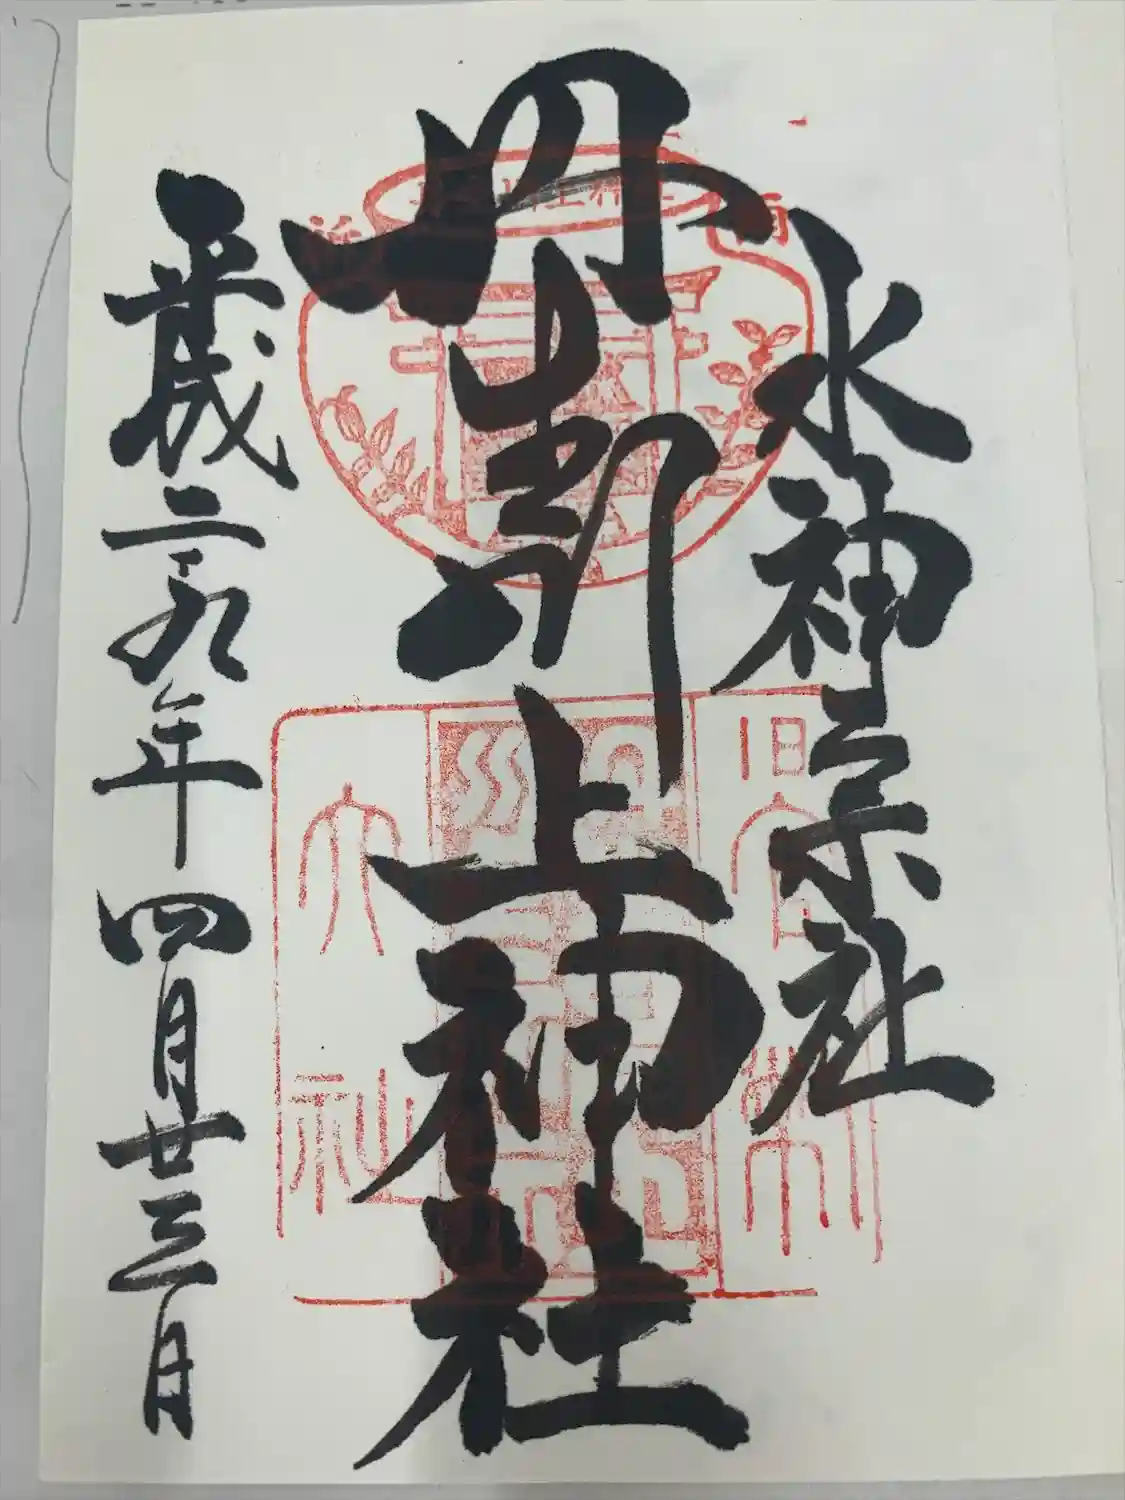 水神宗社
丹生川上神社
平成二九年四月廿三日
旧官幣
大社